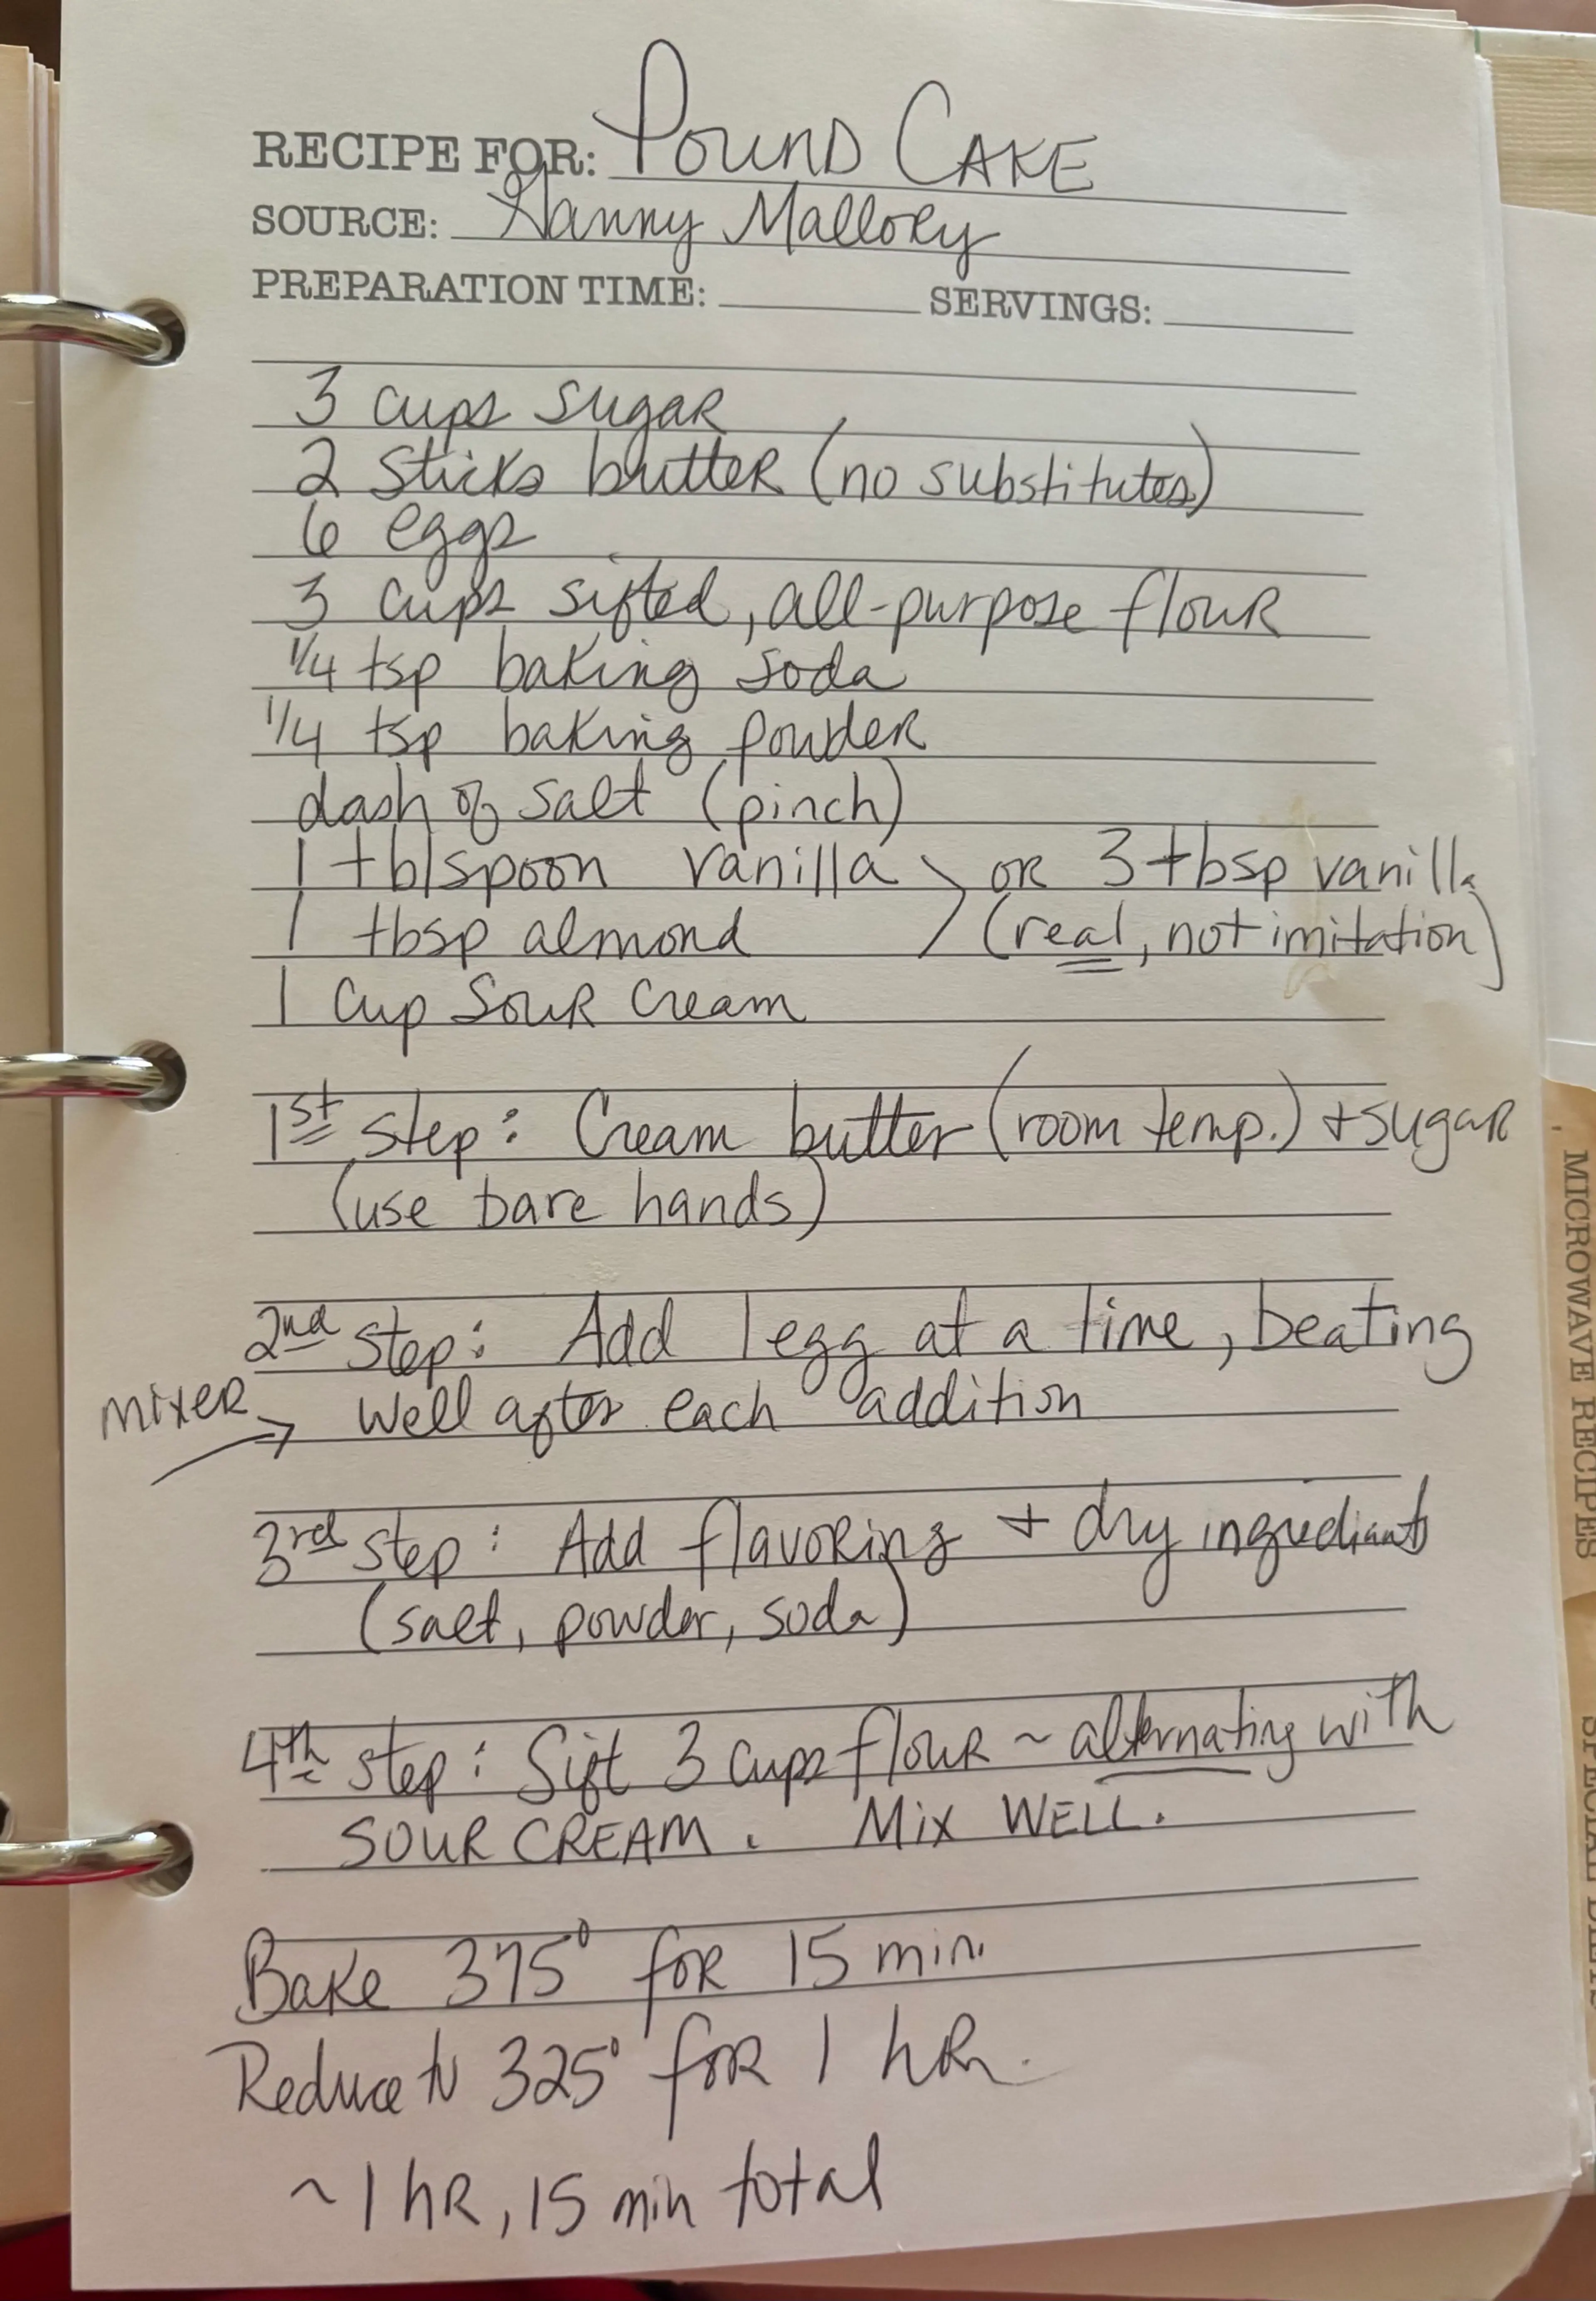 RECIPE FOR: Pound Cake
SOURCE: Nanny Mallory
PREPARATION TIME: SERVINGS:
3 cups sugar
2 sticks butter (no substitutes)
6 eggs
3 cups sifted, all-purpose flour
1/4 tsp baking soda
1/4 tsp baking powder
dash of salt (pinch)
1 tblspoon vanilla \ or 3 tbsp vanilla
1 tbsp almond / (real, not imitation)
1 cup sour cream
1st step: Cream butter (room temp.) + sugar
(use bare hands)
2nd step: Add 1 egg at a time, beating
mixer → well after each addition
3rd step: Add flavoring + dry ingrediants
(salt, powder, soda)
4th step: Sift 3 cups flour ~ alternating with
SOUR CREAM. Mix WELL.
Bake 375° for 15 min.
Reduce to 325° for 1 hr.
~ 1 hr, 15 min total
MICROWAVE RECIPES